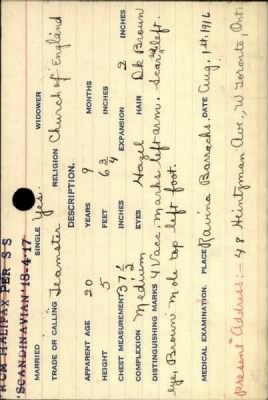 R.C.M HALIFAX PER S-S
'SCANDINAVIAN' 18-4-17
MARRIED SINGLE Yes. WIDOWER
TRADE OR CALLING Teamster RELIGION Church of England
DESCRIPTION.
APPARENT AGE 20 YEARS 9 MONTHS
HEIGHT 5 FEET 6 3/4 INCHES
CHEST MEASUREMENT 37 1/2 INCHES EXPANSION 2 INCHES
COMPLEXION Medium EYES Hazel HAIR Dk Brown
DISTINGUISHING MARKS 4 Vacc. Marks left arm. Scar left
eye, Brown mole top left foot.
MEDICAL EXAMINATION. PLACE Ravina Barracks. DATE Aug. 1st. 1916
Present Address:- 48 Heintzman Ave., W Toronto, Ont.